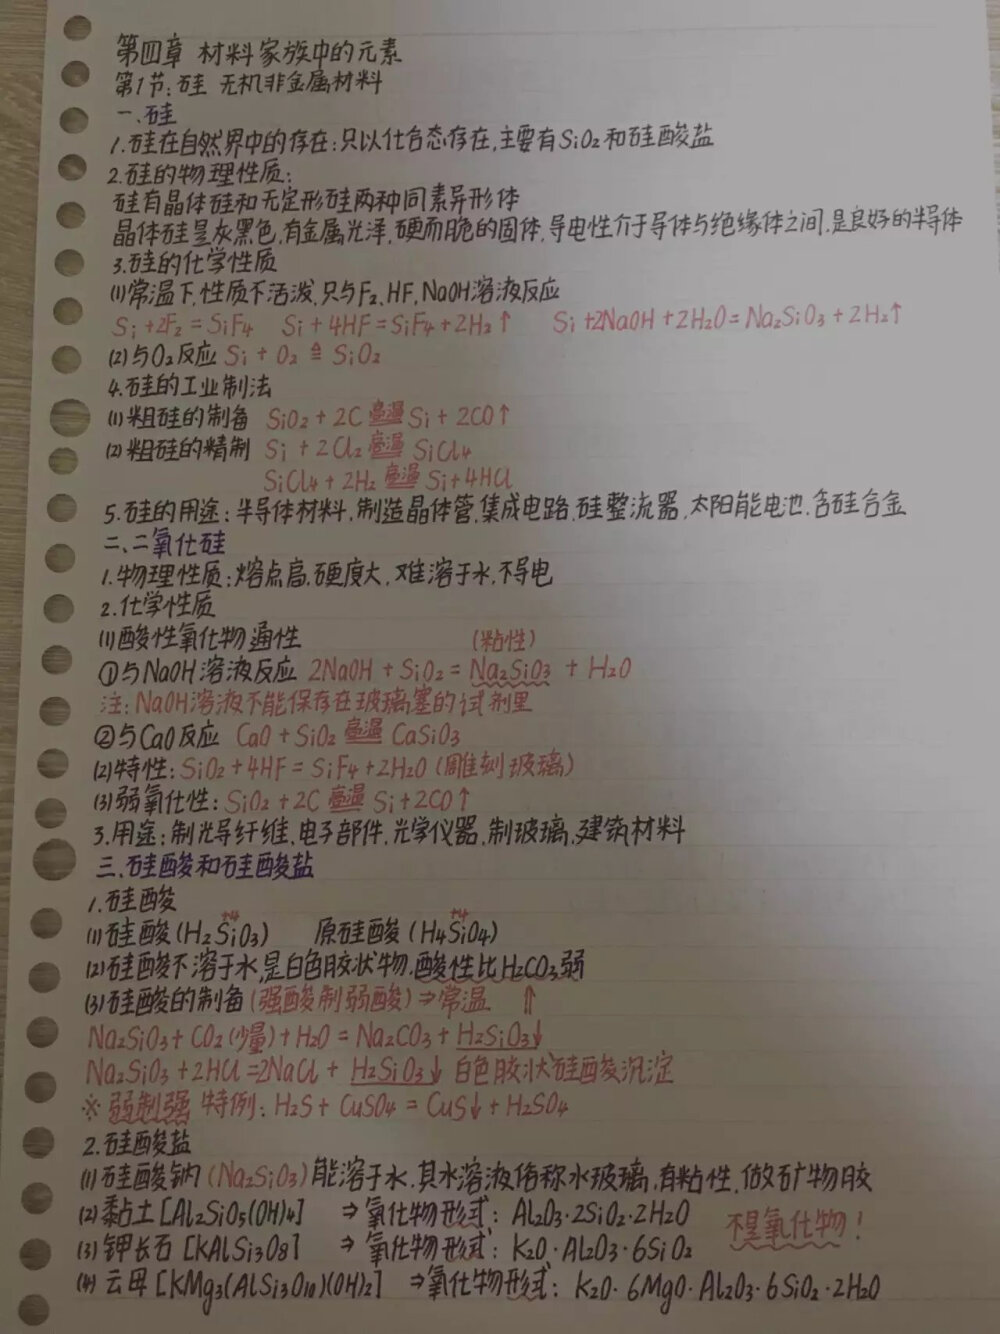 第四章 材料家族中的元素
第1节:硅 无机非金属材料
一、硅
1.硅在自然界中的存在:只以化合态存在,主要有SiO₂和硅酸盐
2.硅的物理性质:
硅有晶体硅和无定形硅两种同素异形体
晶体硅是灰黑色,有金属光泽,硬而脆的固体,导电性介于导体与绝缘体之间,是良好的半导体
3.硅的化学性质
(1)常温下,性质不活泼,只与F₂、HF、NaOH溶液反应
Si+2F₂=SiF₄ Si+4HF=SiF₄+2H₂↑ Si+2NaOH+2H₂O=Na₂SiO₃+2H₂↑
(2)与O₂反应 Si+O₂≜SiO₂
4.硅的工业制法
(1)粗硅的制备 SiO₂+2C 高温 Si+2CO↑
(2)粗硅的精制 Si+2Cl₂ 高温 SiCl₄
SiCl₄+2H₂ 高温 Si+4HCl
5.硅的用途:半导体材料,制造晶体管,集成电路,硅整流器,太阳能电池,含硅合金
二、二氧化硅
1.物理性质:熔点高,硬度大,难溶于水,不导电
2.化学性质
(1)酸性氧化物通性 (粘性)
①与NaOH溶液反应 2NaOH+SiO₂=Na₂SiO₃+H₂O
注:NaOH溶液不能保存在玻璃塞的试剂里
②与CaO反应 CaO+SiO₂ 高温 CaSiO₃
(2)特性:SiO₂+4HF=SiF₄+2H₂O(雕刻玻璃)
(3)弱氧化性:SiO₂+2C 高温 Si+2CO↑
3.用途:制光导纤维,电子部件,光学仪器,制玻璃,建筑材料
三、硅酸和硅酸盐
1.硅酸
+4 +4
(1)硅酸(H₂SiO₃) 原硅酸(H₄SiO₄)
(2)硅酸不溶于水,是白色胶状物,酸性比H₂CO₃弱
(3)硅酸的制备(强酸制弱酸)⇒常温 ⇑
Na₂SiO₃+CO₂(少量)+H₂O=Na₂CO₃+H₂SiO₃↓
Na₂SiO₃+2HCl=2NaCl+H₂SiO₃↓ 白色胶状硅酸沉淀
※弱制强 特例:H₂S+CuSO₄=CuS↓+H₂SO₄
2.硅酸盐
(1)硅酸钠(Na₂SiO₃)能溶于水,其水溶液俗称水玻璃,有粘性,做矿物胶
(2)黏土[Al₂SiO₅(OH)₄] ⇒氧化物形式:Al₂O₃·2SiO₂·2H₂O 不是氧化物!
(3)钾长石[KAlSi₃O₈] ⇒氧化物形式:K₂O·Al₂O₃·6SiO₂
(4)云母[KMg₃(AlSi₃O₁₀)(OH)₂] ⇒氧化物形式:K₂O·6MgO·Al₂O₃·6SiO₂·2H₂O